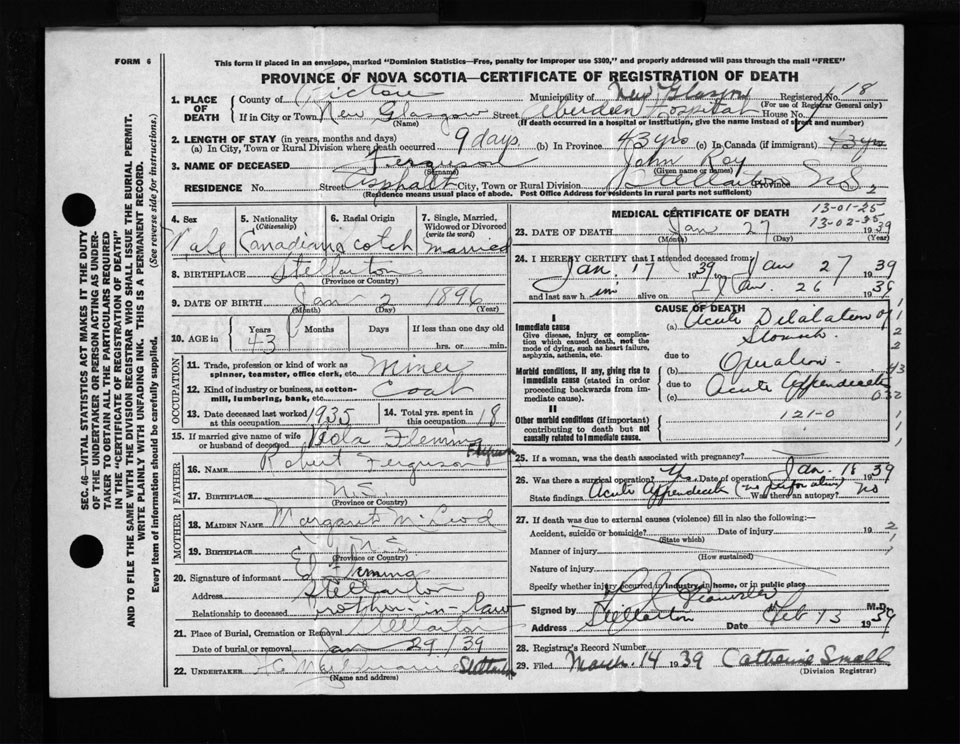 FORM 6
This form if placed in an envelope, marked "Dominion Statistics—Free, penalty for improper use $300," and properly addressed will pass through the mail "FREE"
PROVINCE OF NOVA SCOTIA—CERTIFICATE OF REGISTRATION OF DEATH
SEC. 46—VITAL STATISTICS ACT MAKES IT THE DUTY
OF THE UNDERTAKER OR PERSON ACTING AS UNDER-
TAKER TO OBTAIN ALL THE PARTICULARS REQUIRED
IN THE "CERTIFICATE OF REGISTRATION OF DEATH"
AND TO FILE THE SAME WITH THE DIVISION REGISTRAR WHO SHALL ISSUE THE BURIAL PERMIT.
WRITE PLAINLY WITH UNFADING INK. THIS IS A PERMANENT RECORD.
Every item of Information should be carefully supplied. (See reverse side for instructions.)
1. PLACE OF DEATH County of Pictou Municipality of New Glasgow Registered No. 18
(For use of Registrar General only)
If in City or Town New Glasgow Street Aberdeen Hospital House No.
(Name) (If death occurred in a hospital or institution, give the name instead of street and number)
2. LENGTH OF STAY (in years, months and days)
(a) In City, Town or Rural Division where death occurred 9 days (b) In Province 43 yrs (c) In Canada (if immigrant) 43 yrs
3. NAME OF DECEASED Ferguson John Roy
(Surname) (Given name or names)
RESIDENCE No. Street Asphalt City, Town or Rural Division Stellarton Province N.S. 2
(Residence means usual place of abode. Post Office Address for residents in rural parts not sufficient)
4. Sex Male
5. Nationality (Citizenship) Canadian
6. Racial Origin Scotch
7. Single, Married, Widowed or Divorced (write the word) Married
8. BIRTHPLACE Stellarton
(Province or Country)
9. DATE OF BIRTH Jan 2 1896
(Month) (Day) (Year)
10. AGE in Years 43 Months Days If less than one day old
hrs. or min.
OCCUPATION
11. Trade, profession or kind of work as spinner, teamster, office clerk, etc. Miner
12. Kind of industry or business, as cotton-mill, lumbering, bank, etc. Coal
13. Date deceased last worked at this occupation 1935 14. Total yrs. spent in this occupation 18
15. If married give name of wife or husband of deceased Viola Fleming Ferguson
FATHER
16. NAME Robert Ferguson
17. BIRTHPLACE N.S.
(Province or Country)
MOTHER
18. MAIDEN NAME Margaret McLeod
19. BIRTHPLACE N.S.
(Province or Country)
20. Signature of informant Ed Fleming
Address Stellarton
Relationship to deceased brother-in-law
21. Place of Burial, Cremation or Removal Stellarton
Date of burial or removal Jan 29/39
22. UNDERTAKER Stellarton
(Name and address)
MEDICAL CERTIFICATE OF DEATH
13-01-25
13-02-25
23. DATE OF DEATH Jan 27 1939
(Month) (Day) (Year)
24. I HEREBY CERTIFY that I attended deceased from
Jan. 17 1939 to Jan 27 1939
and last saw him alive on Jan. 26 1939
CAUSE OF DEATH
I
Immediate cause
Give disease, injury or complication which caused death, not the mode of dying, such as heart failure, asphyxia, asthenia, etc.
(a) Acute Dilatation of Stomach
due to
Morbid conditions, if any, giving rise to immediate cause (stated in order proceeding backwards from immediate cause).
(b) Operation
due to
(c) Acute Appendicitis
II
Other morbid conditions (if important) contributing to death but not causally related to immediate cause.
121-0
25. If a woman, was the death associated with pregnancy?
26. Was there a surgical operation? Yes Date of operation Jan. 18 1939
State findings Acute appendicitis (no perforation) Was there an autopsy? No
27. If death was due to external causes (violence) fill in also the following:—
Accident, suicide or homicide? Date of injury 19
(State which)
Manner of injury
(How sustained)
Nature of injury
Specify whether injury occurred in industry, in home, or in public place
Signed by M.D.
Address Stellarton Date Feb 13 1939
28. Registrar's Record Number
29. Filed March 14 1939 Catherine Small
(Division Registrar)